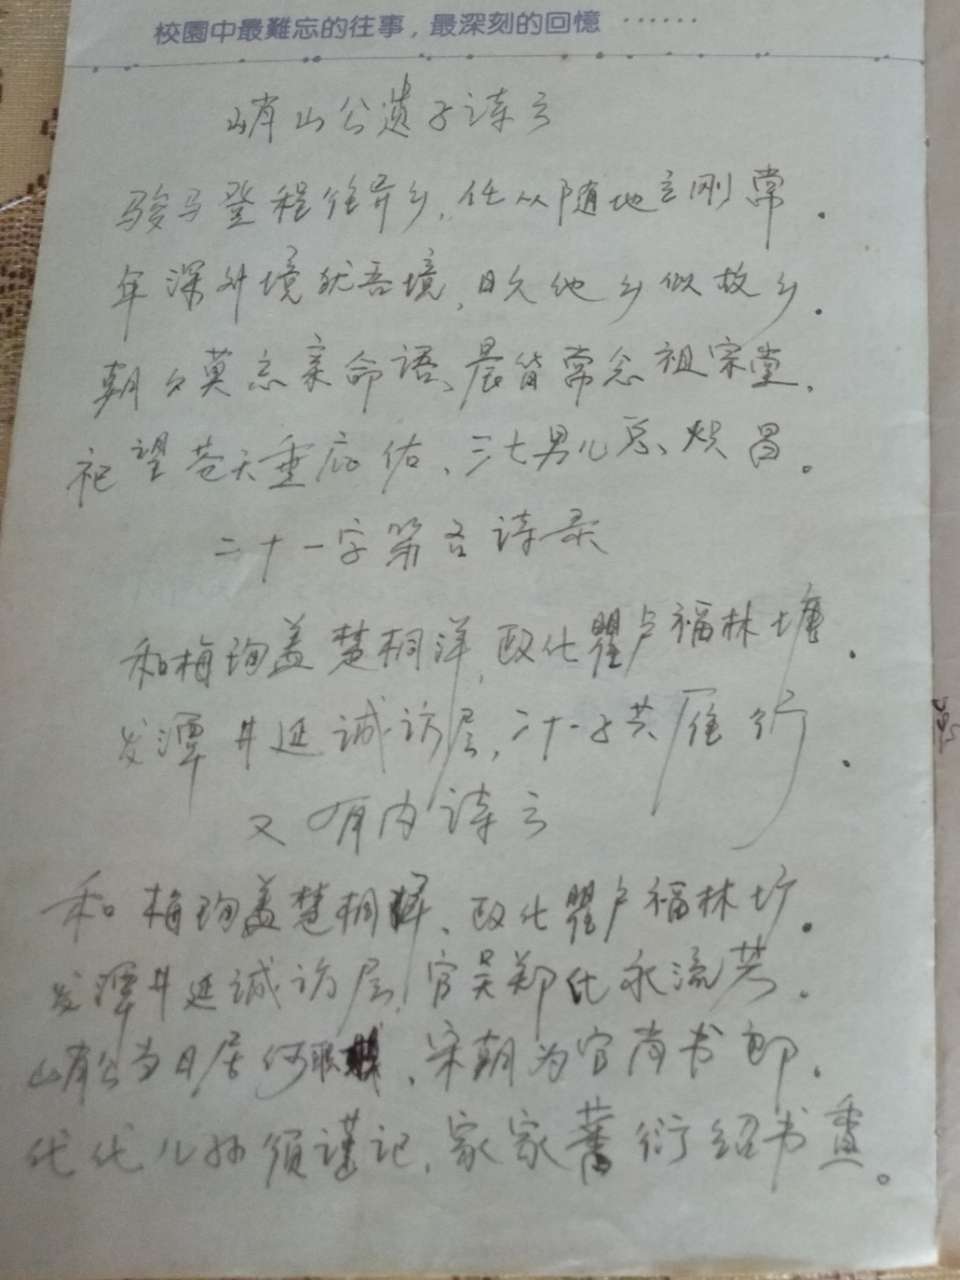 校園中最難忘的往事，最深刻的回憶 ⋯⋯
峭山公遗子诗云
骏马登程往异乡，任从随地立刚常．
年深外境犹吾境，日久他乡似故乡．
朝夕莫忘亲命语、晨昏常念祖宗堂．
祀望苍天垂庇佑、三七男儿总炽昌。
二十一字第名诗录
和梅珣盖楚桐洋，政化瞿卢福林塘．
发潭井延诚访层，二十一子共雁行．
又有内诗云
和梅珣盖楚桐，政化瞿卢福林圹．
发潭井延诚访层，官吴郑化永流芳．
峭公当日居何职，宋朝为官尚书郎．
代代儿孙须谨记，家家蕃衍绍书香。